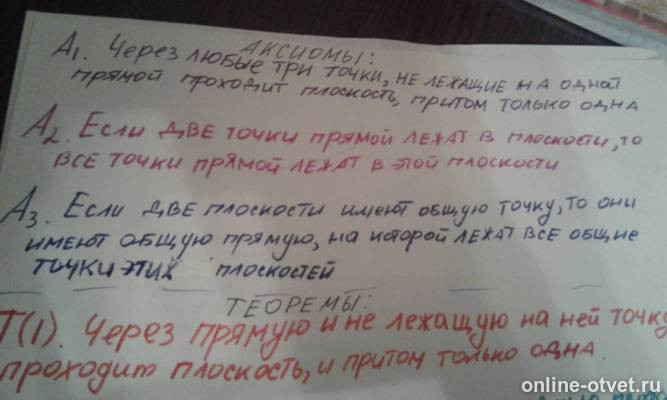 АКСИОМЫ:
А1. Через любые три точки, не лежащие на одной
прямой проходит плоскость, притом только одна
А2. Если две точки прямой лежат в плоскости, то
все точки прямой лежат в этой плоскости
А3. Если две плоскости имеют общую точку, то они
имеют общую прямую, на которой лежат все общие
точки этих плоскостей
ТЕОРЕМЫ:
Т(1). Через прямую и не лежащую на ней точку
проходит плоскость, и притом только одна.
online-otvet.ru